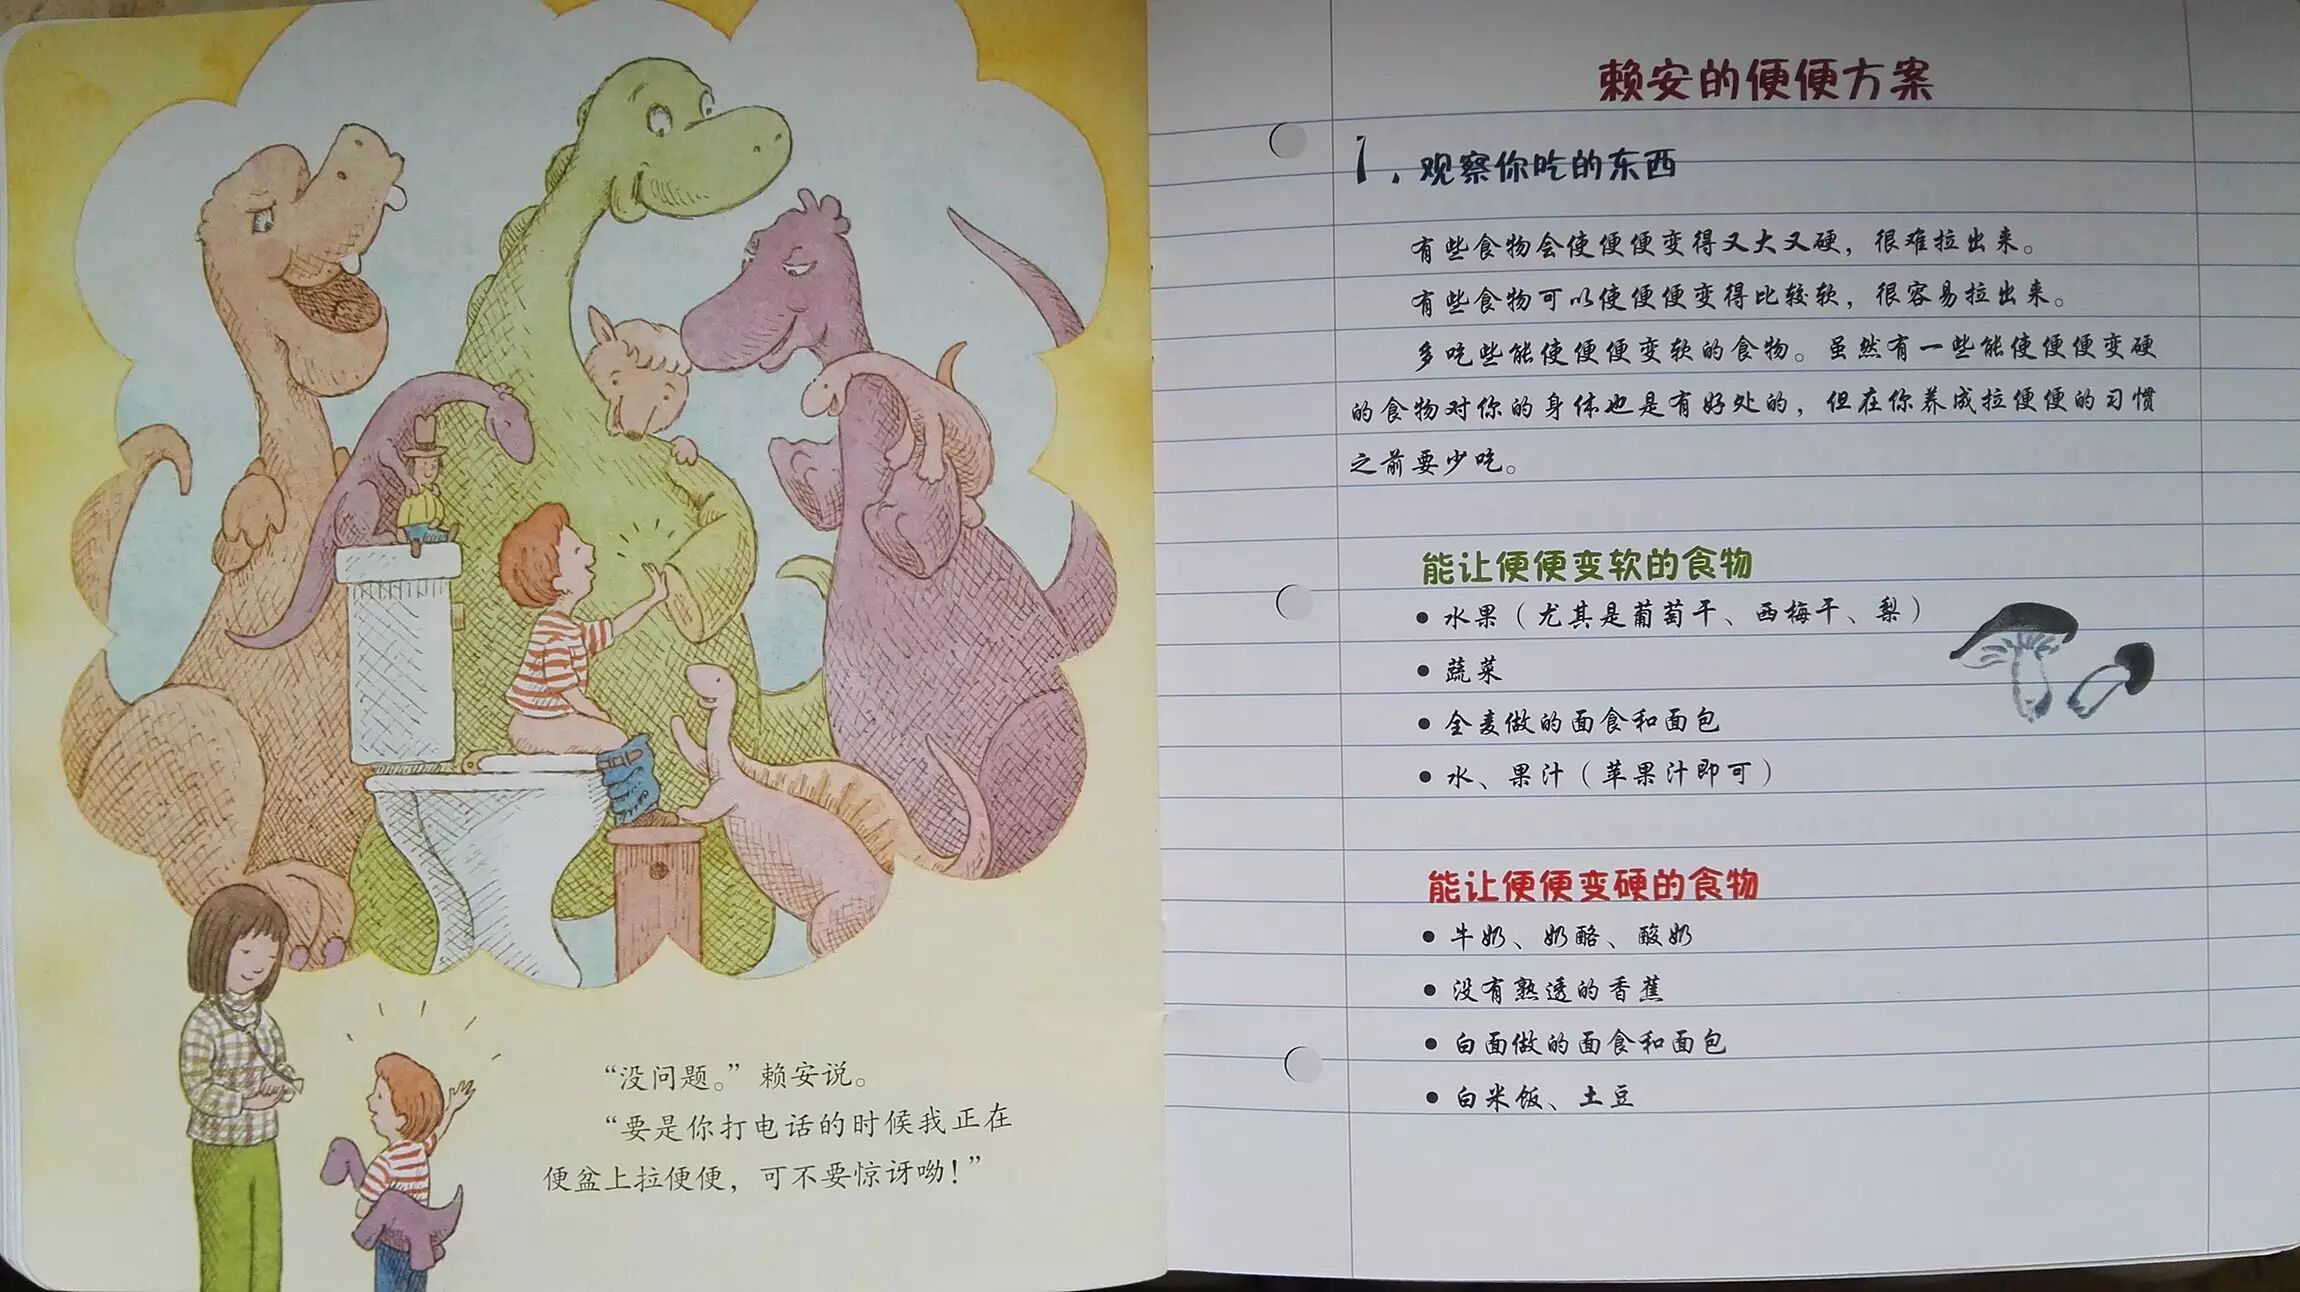 “没问题。”赖安说。
“要是你打电话的时候我正在
便盆上拉便便，可不要惊讶呦！”
赖安的便便方案
1. 观察你吃的东西
有些食物会使便便变得又大又硬，很难拉出来。
有些食物可以使便便变得比较软，很容易拉出来。
多吃些能使便便变软的食物。虽然有一些能使便便变硬
的食物对你的身体也是有好处的，但在你养成拉便便的习惯
之前要少吃。
能让便便变软的食物
• 水果（尤其是葡萄干、西梅干、梨）
• 蔬菜
• 全麦做的面食和面包
• 水、果汁（苹果汁即可）
能让便便变硬的食物
• 牛奶、奶酪、酸奶
• 没有熟透的香蕉
• 白面做的面食和面包
• 白米饭、土豆